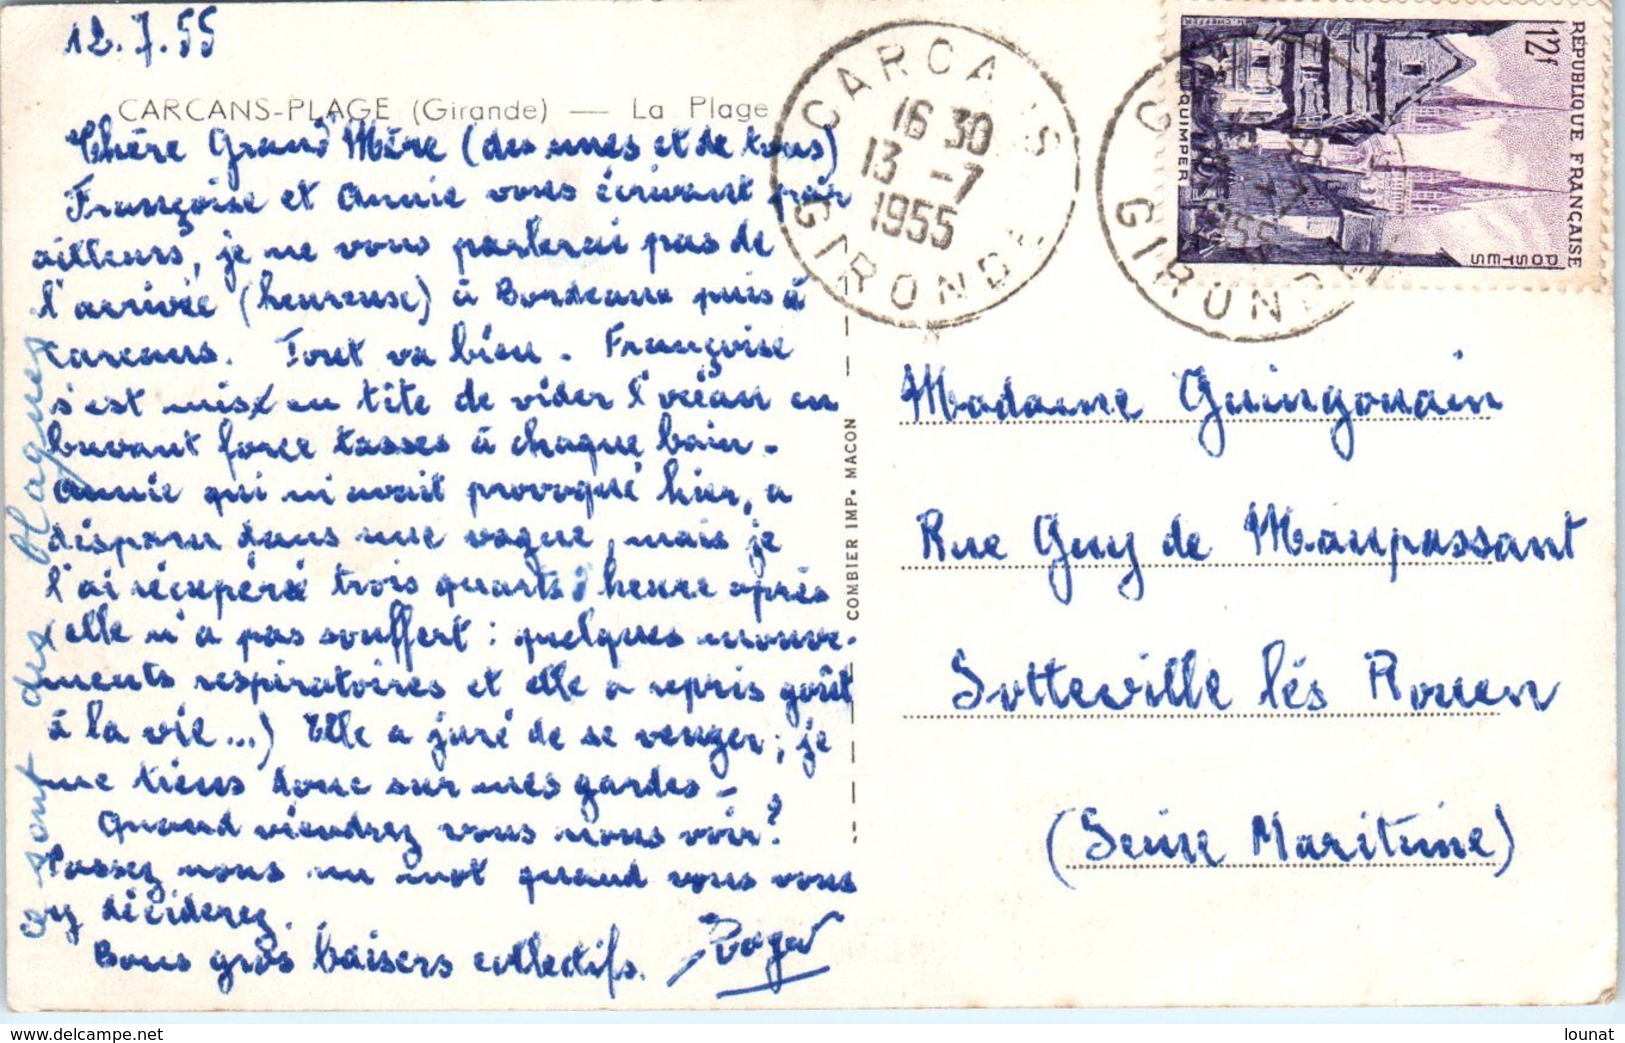 12.7.55
CARCANS-PLAGE (Girande) — La Plage
Chère Grand' Mère (des unes et de tous)
Françoise et Annie vous écrivant par
ailleurs, je ne vous parlerai pas de
l'arrivée (heureuse) à Bordeaux puis à
Carcans. Tout va bien. Françoise
s'est mise en tête de vider l'océan en
buvant force tasses à chaque bain.
Annie qui m'avait provoqué hier, a
disparu dans une vague, mais je
l'ai récupéré trois quarts d'heure après
(elle n'a pas souffert : quelques mouve-
ments respiratoires et elle a repris goût
à la vie...) Elle a juré de se venger ; je
me tiens donc sur mes gardes -
Quand viendrez vous nous voir ?
Passez nous un mot quand vous vous
y déciderez.
Bons gros baisers collectifs. Roger
ce sont des blagues
COMBIER IMP. MACON
CARCANS
16 30
13 -7
1955
GIRONDE
GIRONDE
1955
RÉPUBLIQUE FRANÇAISE
12f
POSTES
QUIMPER
Madame Guingouain
Rue Guy de Maupassant
Sotteville lés Rouen
(Seine Maritime)
lounat
www.delcampe.net